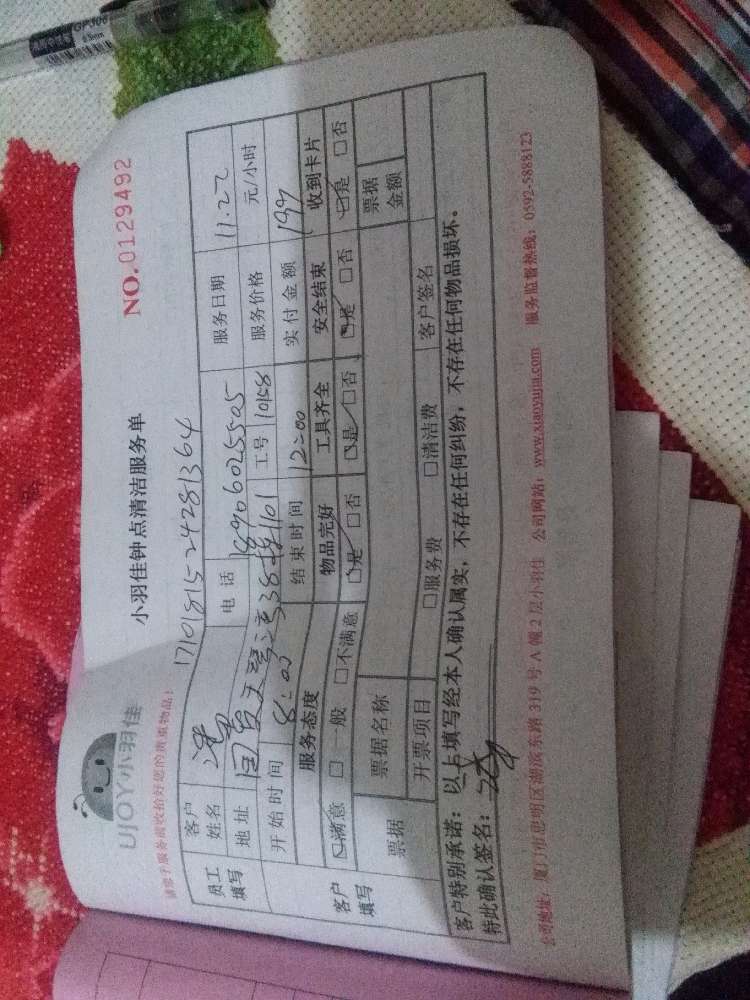 GP306
0.5mm
UJOY小羽佳
小羽佳钟点清洁服务单
NO.0129492
请您于服务前收拾好您的贵重物品!
17101815242281364
员工填写 客户姓名 电话 18906025505 服务日期 11.22
地址 38 1101 工号 10158 服务价格 元/小时
开始时间 8:00 结束时间 12:00 实付金额 199
客户填写 服务态度 物品完好 工具齐全 安全结束 收到卡片
☑满意 □一般 □不满意 ☑是 □否 ☑是 □否 ☑是 □否 ☑是 □否
票据 票据名称 票据金额
开票项目 □服务费 □清洁费 客户签名
客户特别承诺:以上填写经本人确认属实,不存在任何纠纷,不存在任何物品损坏。
特此确认签名:
公司地址:厦门市思明区湖滨东路319号A幢2层小羽佳 公司网站:www.xiaoyujia.com 服务监督热线:0592-5888123